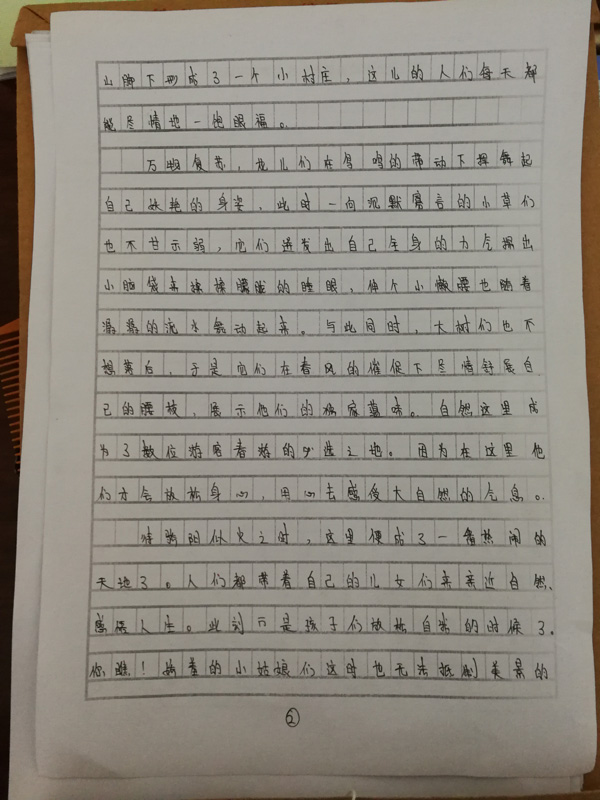 山脚下形成了一个小村庄，这儿的人们每天都
能尽情地一饱眼福。
万物复苏，花儿们在鸟鸣的带动下挥舞起
自己妖艳的身姿，此时一向沉默寡言的小草们
也不甘示弱，它们迸发出自己全身的力气探出
小脑袋来揉揉朦胧的睡眼，伸个小懒腰也随着
潺潺的流水舞动起来。与此同时，大树们也不
想落后，于是它们在春风的催促下尽情舒展自
己的腰枝，展示他们的独家
自然这里成
为了数位游客春游的必选之地。因为在这里他
们才会放松身心，用心去感受大自然的气息。
待骄阳似火之时，这里便成了一番热闹的
天地了。人们都带着自己的儿女们来亲近自然、
感悟人生。此刻可是孩子们放松自我的时候了。
你瞧！娇羞的小姑娘们这时也无法抵制美景的
②